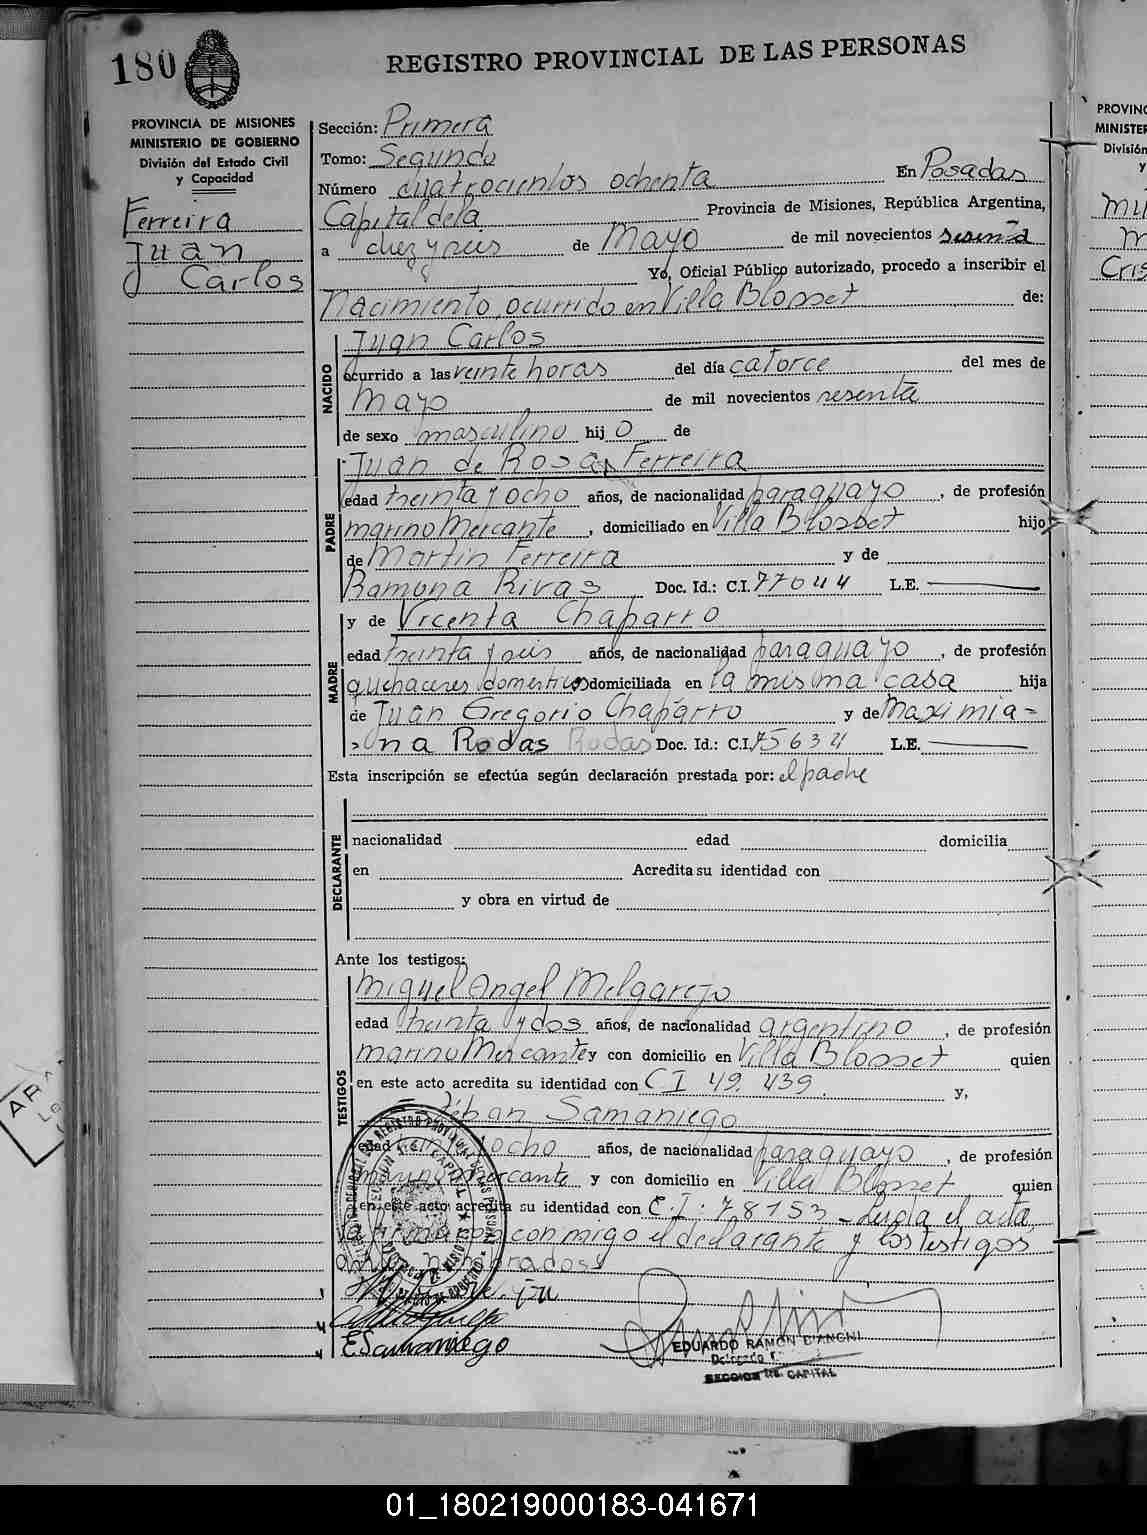 180
REGISTRO PROVINCIAL DE LAS PERSONAS
PROVINCIA DE MISIONES
MINISTERIO DE GOBIERNO
División del Estado Civil
y Capacidad
Ferreira
Juan
Carlos
Sección: Primera
Tomo: Segundo
Número cuatrocientos ochenta En Posadas
Capital de la Provincia de Misiones, República Argentina,
a diez y seis de Mayo de mil novecientos sesenta
Yo, Oficial Público autorizado, procedo a inscribir el
Nacimiento, ocurrido en Villa Blosset de:
NACIDO
Juan Carlos
ocurrido a las veinte horas del día catorce del mes de
Mayo de mil novecientos sesenta
de sexo masculino hijo de
PADRE
Juan de Rosa Ferreira
edad treinta y ocho años, de nacionalidad paraguayo, de profesión
marino Mercante, domiciliado en Villa Blosset hijo
de Martin Ferreira y de
Ramona Rivas Doc. Id.: C.I. 77044 L.E.
MADRE
y de Vicenta Chaparro
edad treinta y seis años, de nacionalidad paraguayo, de profesión
quehaceres domesticos domiciliada en la misma casa hija
de Juan Gregorio Chaparro y de Maximia-
na Rodas Rodas Doc. Id.: C.I. 75634 L.E.
Esta inscripción se efectúa según declaración prestada por: el padre
DECLARANTE
nacionalidad edad domicilia
en Acredita su identidad con
y obra en virtud de
Ante los testigos:
TESTIGOS
Miguel Angel Melgarejo
edad treinta y dos años, de nacionalidad argentino, de profesión
marino Mercante y con domicilio en Villa Blosset quien
en este acto acredita su identidad con C I 49.439. y,
Samaniego
edad ocho años, de nacionalidad paraguayo, de profesión
marino mercante y con domicilio en Villa Blosset quien
en este acto acredita su identidad con C.I. 78153 - Leida el acta,
la firmaron conmigo el declarante y los testigos
antes nombrados
E Samaniego
EDUARDO RAMON D'ANGNI
Delegado
SECCION 1ra. CAPITAL
PROVINC
MINISTER
División
y
Cris
01_180219000183-041671